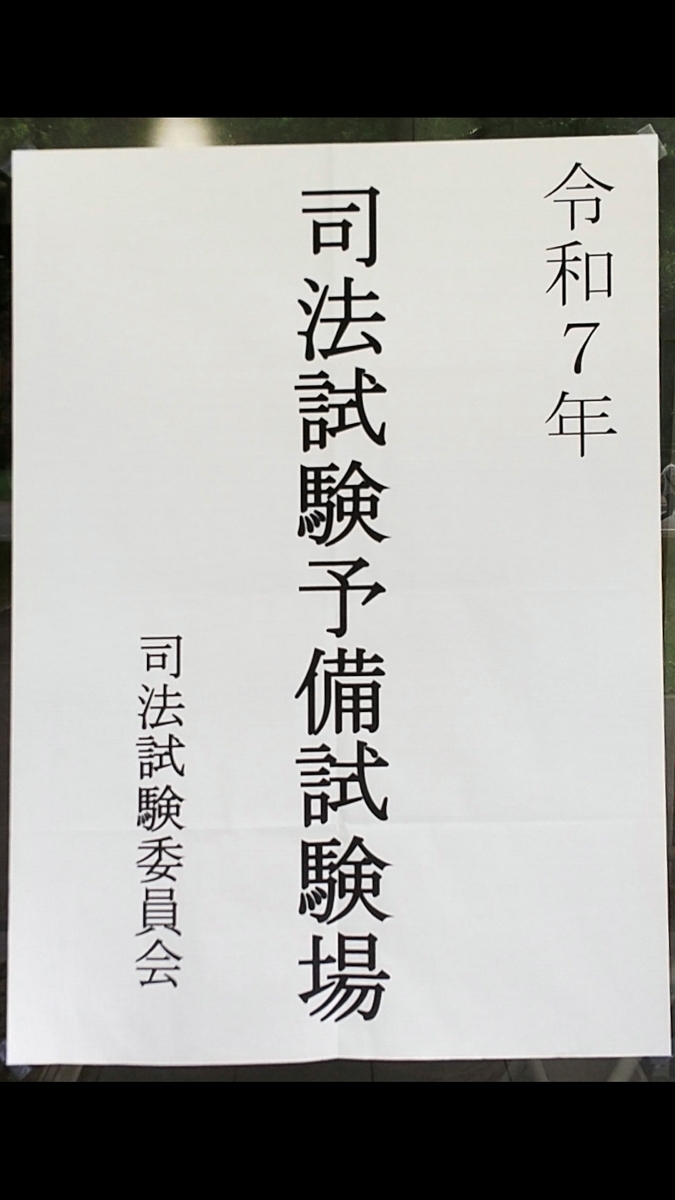 令和７年
司法試験予備試験場
司法試験委員会